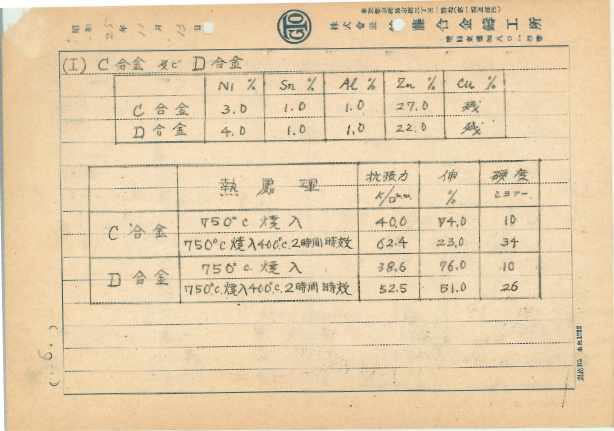 昭和 25年 11月 13日
GTO
株式會社 藤合金鑄工所
(I) C合金 及ビ D合金
Ni % Sn % Al % Zn % Cu %
C 合金 3.0 1.0 1.0 27.0 残
D 合金 4.0 1.0 1.0 22.0 残
熱 處 理 抗張力 K/□mm 伸 % 硬度 ショアー
C 合金 750°C 燒入 40.0 74.0 10
750°C 燒入 400°C. 2時間時效 62.4 23.0 34
D 合金 750°C 燒入 38.6 76.0 10
750°C. 燒入 400°C. 2時間時效 52.5 51.0 26
( 6. )